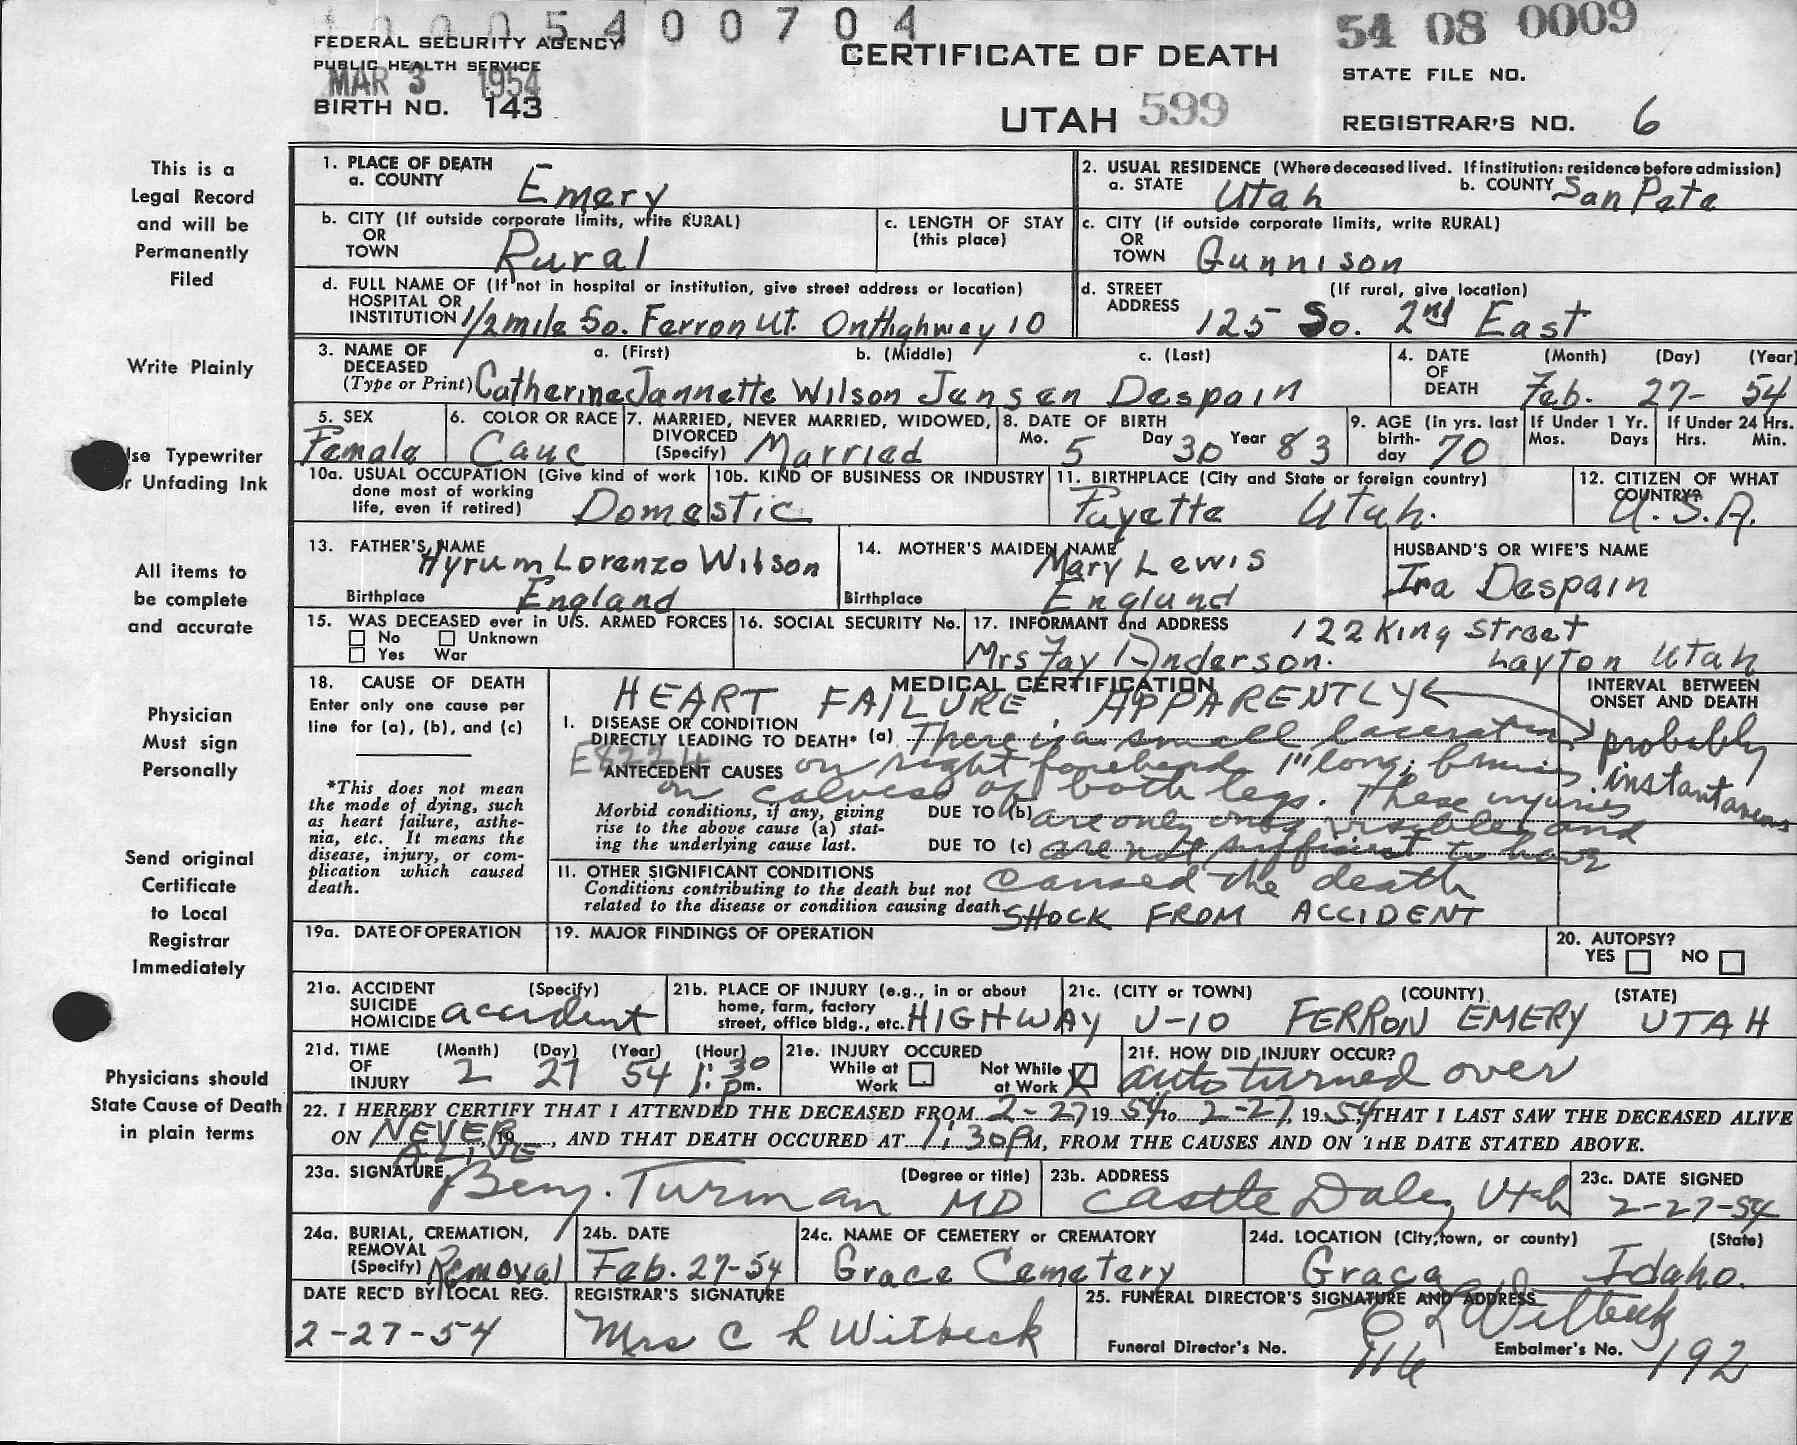 1 0 0 0 5 4 0 0 7 0 4
54 08 0009
FEDERAL SECURITY AGENCY
PUBLIC HEALTH SERVICE
MAR 3 1954
BIRTH NO. 143
CERTIFICATE OF DEATH
UTAH 599
STATE FILE NO.
REGISTRAR'S NO. 6
This is a
Legal Record
and will be
Permanently
Filed
Write Plainly
Use Typewriter
or Unfading Ink
All items to
be complete
and accurate
Physician
Must sign
Personally
Send original
Certificate
to Local
Registrar
Immediately
Physicians should
State Cause of Death
in plain terms
1. PLACE OF DEATH
a. COUNTY Emery
2. USUAL RESIDENCE (Where deceased lived. If institution: residence before admission)
a. STATE Utah b. COUNTY San Pete
b. CITY (If outside corporate limits, write RURAL)
OR
TOWN Rural
c. LENGTH OF STAY
(this place)
c. CITY (if outside corporate limits, write RURAL)
OR
TOWN Gunnison
d. FULL NAME OF (If not in hospital or institution, give street address or location)
HOSPITAL OR
INSTITUTION 1/2 mile So. Ferron Ut. On Highway 10
d. STREET (If rural, give location)
ADDRESS 125 So. 2nd East
3. NAME OF a. (First) b. (Middle) c. (Last)
DECEASED
(Type or Print) Catherine Jannette Wilson Jensen Despain
4. DATE (Month) (Day) (Year)
OF
DEATH Feb. 27- 54
5. SEX
Female
6. COLOR OR RACE
Cauc
7. MARRIED, NEVER MARRIED, WIDOWED,
DIVORCED
(Specify) Married
8. DATE OF BIRTH
Mo. 5 Day 30 Year 83
9. AGE (in yrs. last
birth-
day 70
If Under 1 Yr.
Mos. Days
If Under 24 Hrs.
Hrs. Min.
10a. USUAL OCCUPATION (Give kind of work
done most of working
life, even if retired) Domestic
10b. KIND OF BUSINESS OR INDUSTRY
11. BIRTHPLACE (City and State or foreign country)
Fayette Utah.
12. CITIZEN OF WHAT
COUNTRY?
U.S.A.
13. FATHER'S NAME
Hyrum Lorenzo Wilson
Birthplace England
14. MOTHER'S MAIDEN NAME
Mary Lewis
Birthplace England
HUSBAND'S OR WIFE'S NAME
Ira Despain
15. WAS DECEASED ever in U.S. ARMED FORCES
No Unknown
Yes War
16. SOCIAL SECURITY No.
17. INFORMANT and ADDRESS 122 King Street
Mrs Fay Anderson. Layton Utah
18. CAUSE OF DEATH
Enter only one cause per
line for (a), (b), and (c)
*This does not mean
the mode of dying, such
as heart failure, asthe-
nia, etc. It means the
disease, injury, or com-
plication which caused
death.
MEDICAL CERTIFICATION
HEART FAILURE, APPARENTLY
I. DISEASE OR CONDITION
DIRECTLY LEADING TO DEATH* (a) There is a small laceration
E8224
ANTECEDENT CAUSES on right forehead 1" long; bruises
on calves of both legs. These injuries
Morbid conditions, if any, giving
rise to the above cause (a) stat-
ing the underlying cause last.
DUE TO (b) are only ones visible, and
DUE TO (c) are not sufficient to have
II. OTHER SIGNIFICANT CONDITIONS
Conditions contributing to the death but not
related to the disease or condition causing death.
caused the death
SHOCK FROM ACCIDENT
INTERVAL BETWEEN
ONSET AND DEATH
probably
instantaneous
19a. DATE OF OPERATION
19. MAJOR FINDINGS OF OPERATION
20. AUTOPSY?
YES NO
21a. ACCIDENT (Specify)
SUICIDE
HOMICIDE accident
21b. PLACE OF INJURY (e.g., in or about
home, farm, factory
street, office bldg., etc. HIGHWAY U-10
21c. (CITY or TOWN) (COUNTY) (STATE)
FERRON EMERY UTAH
21d. TIME (Month) (Day) (Year) (Hour)
OF
INJURY 2 27 54 1:30 pm.
21e. INJURY OCCURED
While at Work
Not While at Work X
21f. HOW DID INJURY OCCUR?
auto turned over
22. I HEREBY CERTIFY THAT I ATTENDED THE DECEASED FROM 2-27 19 54 to 2-27, 19 54 THAT I LAST SAW THE DECEASED ALIVE
ON NEVER ALIVE, 19, AND THAT DEATH OCCURED AT 1:30 PM, FROM THE CAUSES AND ON THE DATE STATED ABOVE.
23a. SIGNATURE (Degree or title)
Benj. Turman MD
23b. ADDRESS
Castle Dale, Utah
23c. DATE SIGNED
2-27-54
24a. BURIAL, CREMATION,
REMOVAL
(Specify) Removal
24b. DATE
Feb. 27-54
24c. NAME OF CEMETERY or CREMATORY
Grace Cemetery
24d. LOCATION (City, town, or county) (State)
Grace Idaho.
DATE REC'D BY LOCAL REG.
2-27-54
REGISTRAR'S SIGNATURE
Mrs C L Witbeck
25. FUNERAL DIRECTOR'S SIGNATURE AND ADDRESS
C L Witbeck
Funeral Director's No. 116
Embalmer's No. 192